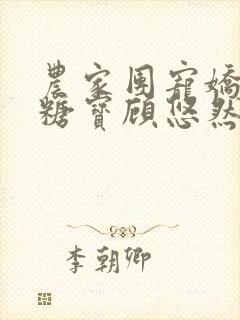 農家团寵嬌
糖寶顾悠然
李朝卿